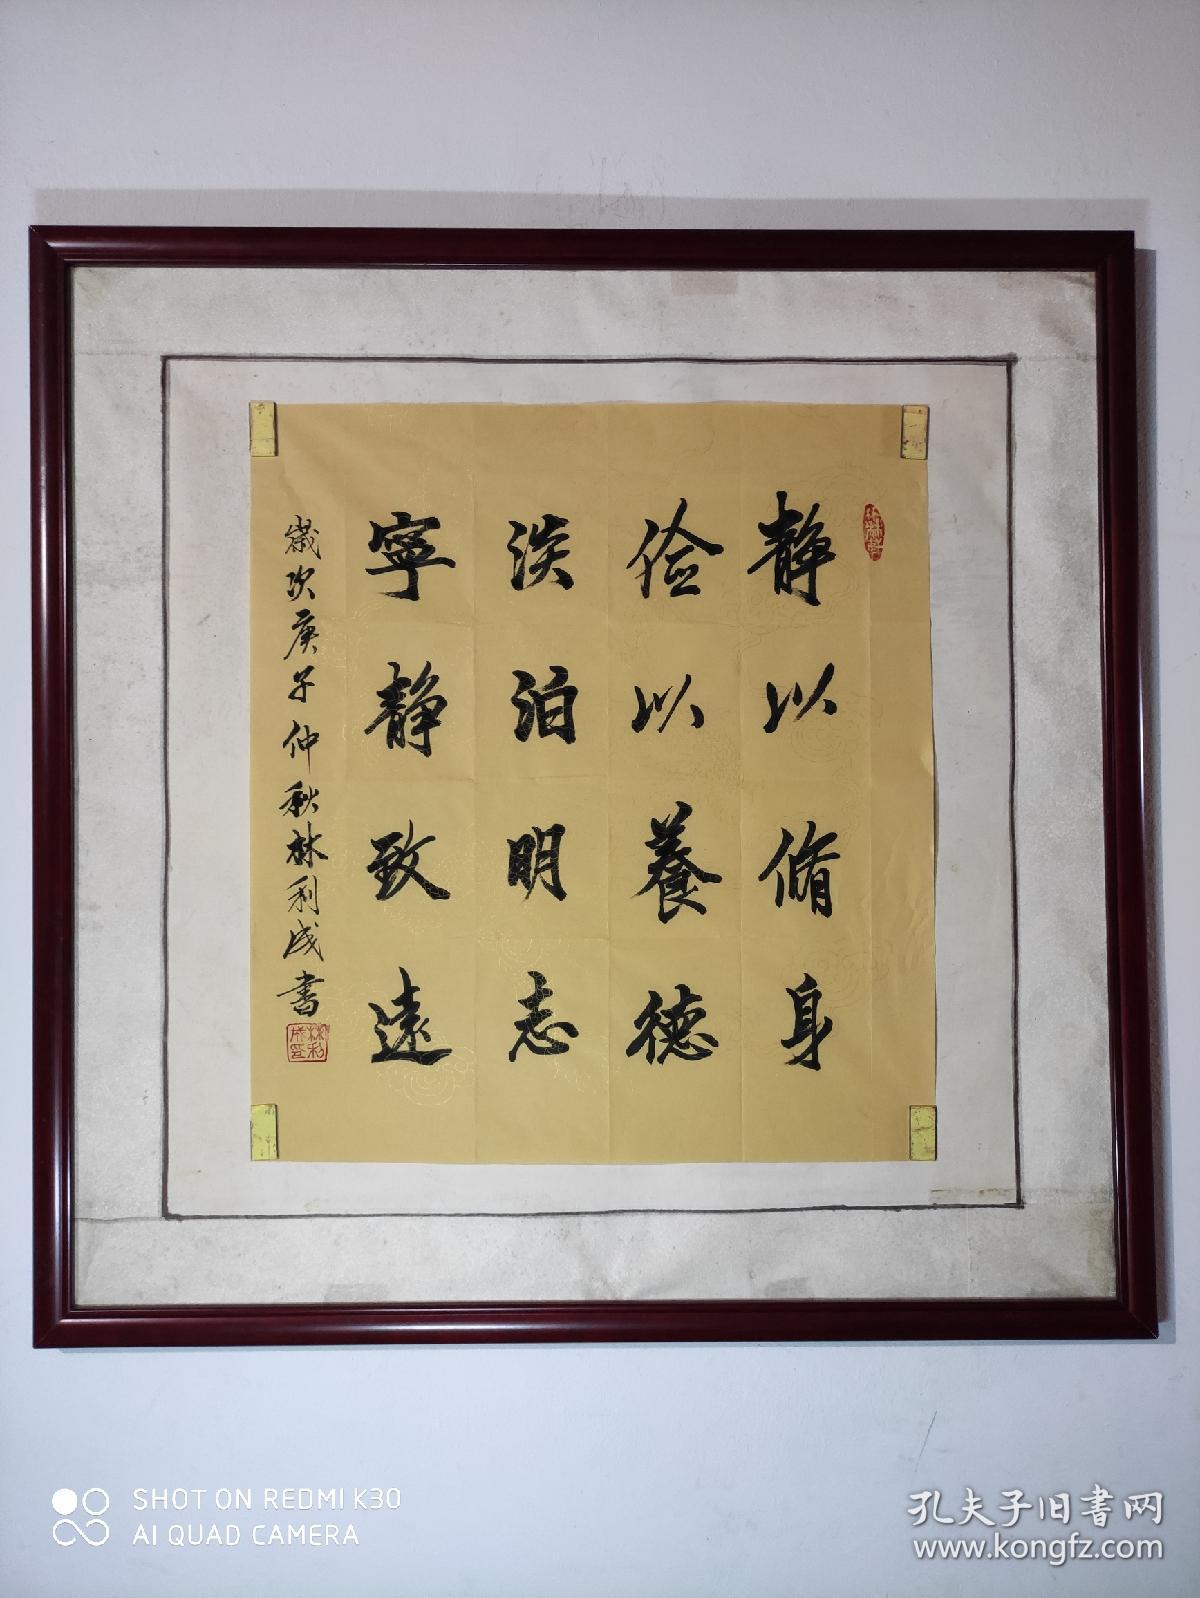 静以脩身
俭以養德
淡泊明志
寧静致遠
歲次庚子仲秋林利成書
林利成印
SHOT ON REDMI K30
AI QUAD CAMERA
孔夫子旧书网
www.kongfz.com